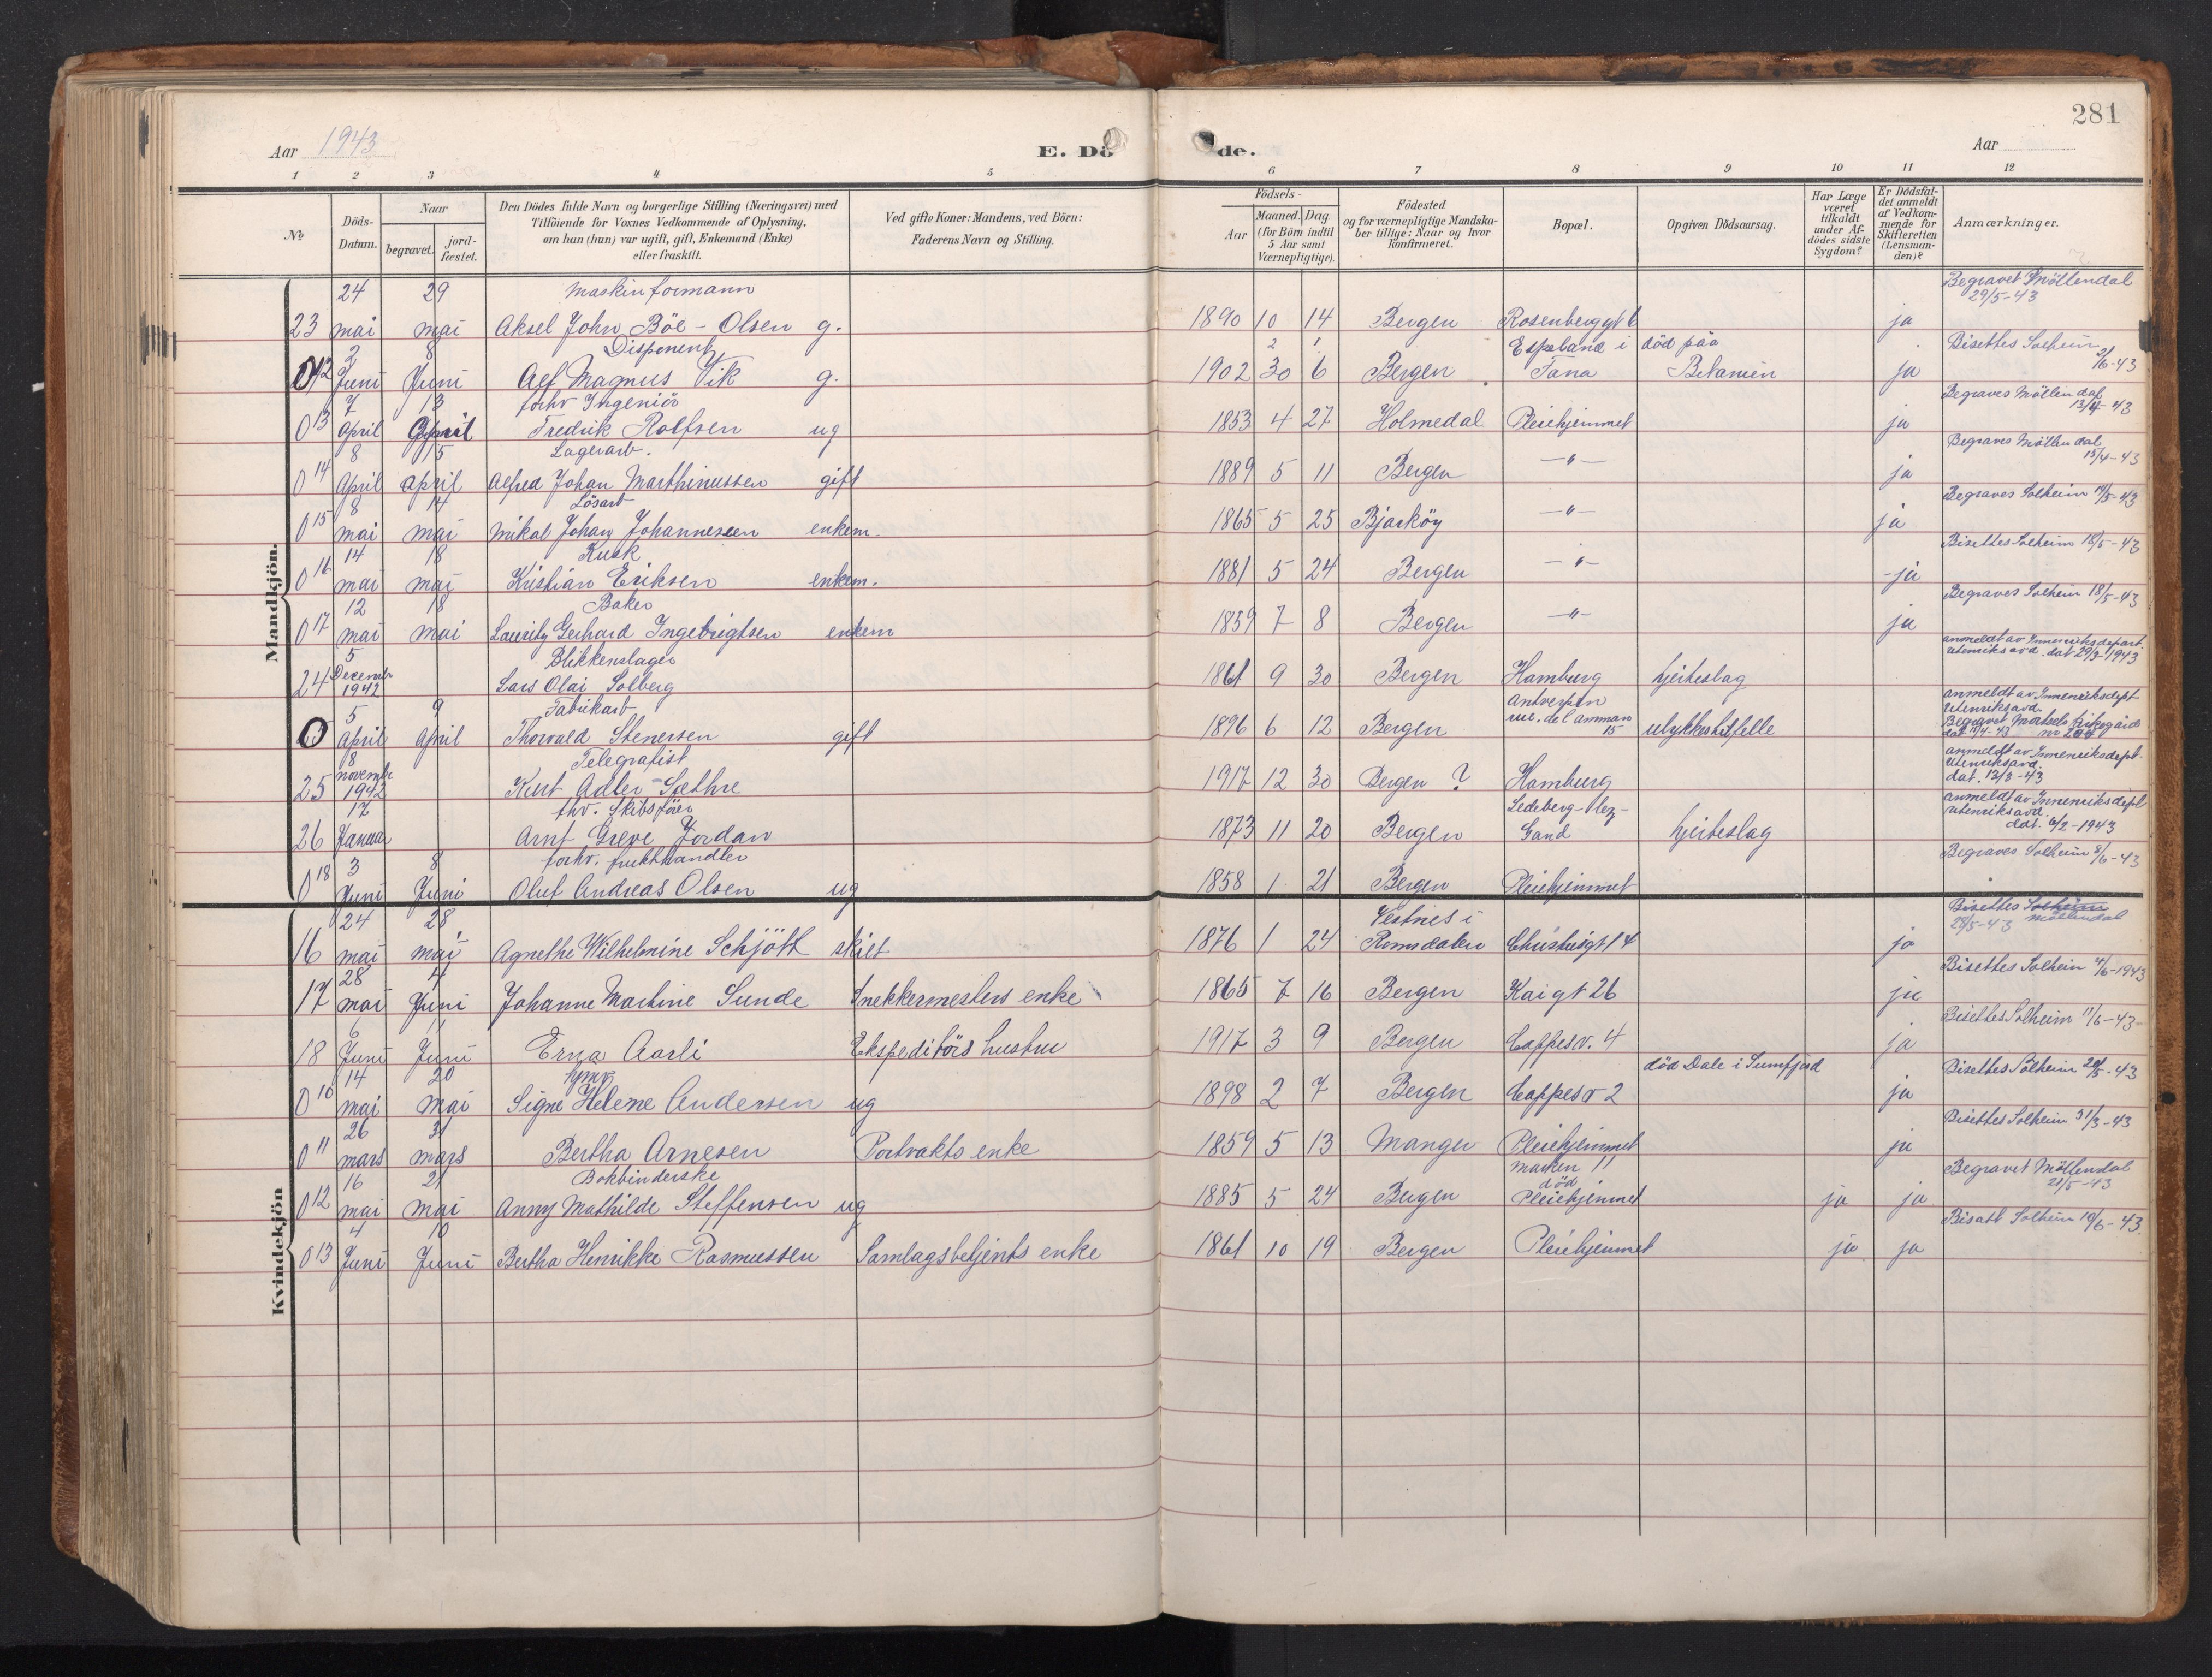 281
Aar 1943
E. Dö de.
Aar
1 2 3 4 5 6 7 8 9 10 11 12
№
Döds-Datum.
Naar
begravet.
jord-fæstet.
Den Dödes fulde Navn og borgerlige Stilling (Næringsvei) med
Tilföiende for Voxnes Vedkommende af Oplysning,
om han (hun) var ugift, gift, Enkemand (Enke)
eller fraskilt.
Ved gifte Koner: Mandens, ved Börn:
Faderens Navn og Stilling.
Födsels-
Aar
Maaned. Dag
(for Börn indtil
5 Aar samt
Værnepligtige).
Födested
og for værnepligtige Mandska-
ber tillige: Naar og hvor
Konfirmeret.
Bopæl.
Opgiven Dödsaarsag.
Har Læge
været
tilkaldt
under Af-
dödes sidste
Sygdom?
Er Dödsfal-
det anmeldt
af Vedkom-
mende for
Skifteretten
(Lensman-
den)?
Anmærkninger.
Mandkjön.
24 29 Maskinformann Begravet Möllendal
29/5-43
23 mai mai Aksel John Böe - Olsen g. 1890 10 14 Bergen Rosenberggt 6 ja
2 8 Disponent 2 1 Espeland i død paa Bisettes Solheim
12 Juni Juni Alf Magnus Vik g. 1902 30 6 Bergen Fana Betanien ja 8/6-43
7 13 forhv Ingeniör Begraves Möllendal
13/4-43
013 April April Fredrik Rolfsen ug 1853 4 27 Holmedal Pleiehjemmet ja
8 15 Lagerarb. Begraves Möllendal
15/4-43
014 April April Alfred Johan Marthinussen gift 1889 5 11 Bergen -"- ja
8 14 Lösarb Begraves Solheim 14/5-43
015 mai mai Mikal Johan Johannesen enkem. 1865 5 25 Bjarköy -"- ja
14 18 Kusk Bisettes Solheim 18/5-43
016 mai mai Kristian Eriksen enkem. 1881 5 24 Bergen -"- ja
12 18 Baker Begraves Solheim 18/5-43
017 mai mai Lauritz Gerhard Ingebrigtsen enkem 1859 7 8 Bergen -"- ja
5 Blikkenslager anmeldt av Innenriksdepart.
Utenriksavd. dat 29/3-1943
24 Decembr 1942 Lars Olai Solberg 1861 9 30 Bergen Hamburg hjerteslag
5 9 Fabrikarb Antverpen anmeldt av Innenriksdept
Utenriksavd.
0 April April Thorvald Stenersen gift 1896 6 12 Bergen rue. de l amman 15 ulykkestilfelle Begravet Mortsels kirkegård
8 Telegrafist anmeldt av Innenriksdept.
Utenriksavd.
dat. 12/3-43
25 novembr 1942 Kurt Adler-Sæthre 1917 12 30 Bergen ? Hamburg
17 fhv. Skibsförer Ledeberg- anmeldt av Innenriksdept
Utenriksavd.
dat. 6/2-1943
26 Januar Arnt Greve Jordan 1873 11 20 Bergen Gand hjerteslag
3 8 forhv. frukthandler Begraves Solheim 8/6-43
018 Juni Juni Oluf Andreas Olsen ug 1858 1 21 Bergen Pleiehjemmet
Kvindekjön
24 28 Vestnes i Bisettes Solheim
28/5-43 Möllendal
16 mai mai Agnethe Wilhelmine Schjött skilt 1876 1 24 Romsdalen Christiesgt 14 ja
28 4 Bisettes Solheim 4/6-1943
17 mai Juni Johanne Martine Sunde Snekkermesters enke 1865 7 16 Bergen Kaigt 26 ja
6 11 Bisettes Solheim 11/6-43
18 Juni Juni Erna Aarli Ekspeditörs hustru 1917 3 9 Bergen Cappesv. 4 ja
14 20 hjmv død Dale i Sunnfjord Bisettes Solheim 20/5-43
010 mai mai Signe Helene Andersen ug 1898 2 7 Bergen Cappesv 2 ja
26 31 Bisettes Solheim 31/3-43
011 mars mars Bertha Arnesen Portvakts enke 1859 5 13 Manger Pleiehjemmet ja
16 21 Bokbinderske Marken 11 Begravet Möllendal
21/5-43
død
012 mai mai Anny Mathilde Steffensen ug 1885 5 24 Bergen Pleiehjemmet ja ja
4 10 Bisatt Solheim 10/6-43
013 Juni Juni Bertha Henrikke Rasmussen Samlagsbetjents enke 1861 10 19 Bergen Pleiehjemmet ja ja